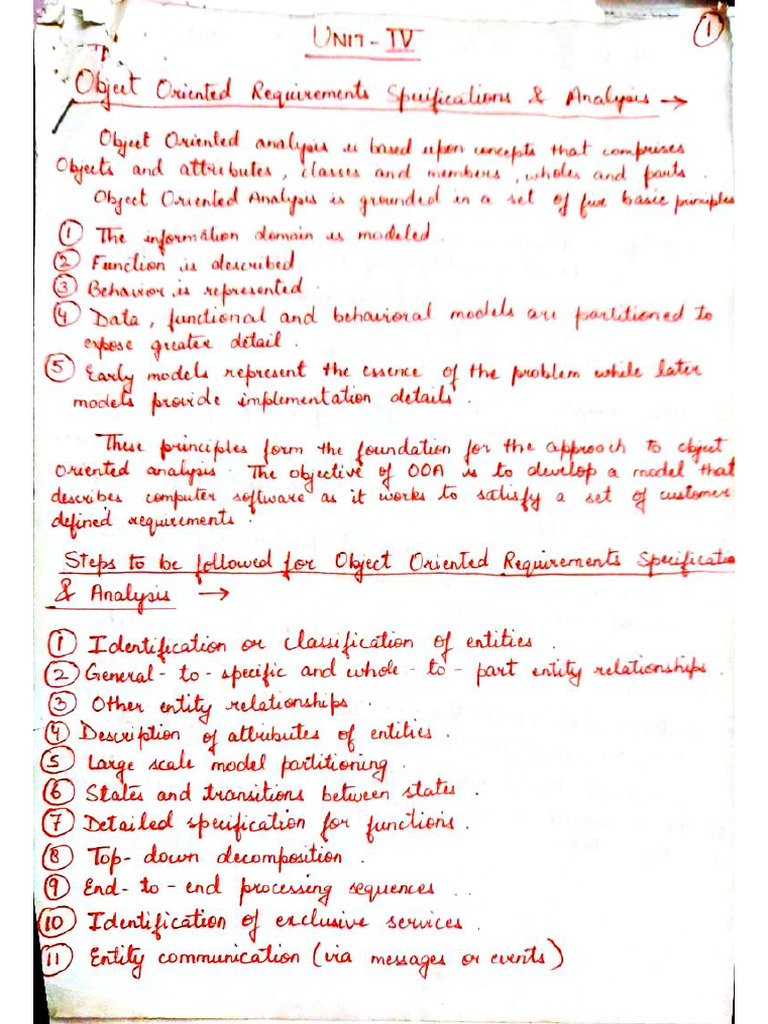 1
UNIT-IV
Object Oriented Requirements Specifications & Analysis →
Object Oriented analysis is based upon concepts that comprises
Objects and attributes, classes and members, wholes and parts.
Object Oriented Analysis is grounded in a set of five basic principles
1 The information domain is modeled.
2 Function is described
3 Behavior is represented.
4 Data, functional and behavioral models are partitioned to
expose greater detail.
5 Early models represent the essence of the problem while later
models provide implementation details.
These principles form the foundation for the approach to object
oriented analysis. The objective of OOA is to develop a model that
describes computer software as it works to satisfy a set of customer
defined requirements.
Steps to be followed for Object Oriented Requirements Specificatio
& Analysis →
1 Identification or classification of entities.
2 General-to-specific and whole-to-part entity relationships.
3 Other entity relationships.
4 Description of attributes of entities.
5 Large scale model partitioning.
6 States and transitions between states.
7 Detailed specification for functions.
8 Top-down decomposition.
9 End-to-end processing sequences..
10 Identification of exclusive services.
11 Entity communication (via messages or events)